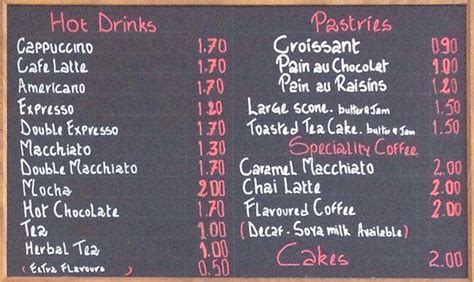 Hot Drinks
Cappuccino 1.70
Cafe Latte 1.70
Americano 1.70
Expresso 1.20
Double Expresso 1.70
Macchiato 1.30
Double Macchiato 1.70
Mocha 2.00
Hot Chocolate 1.70
Tea 1.00
Herbal Tea 1.00
(Extra Flavours) 0.50
Pastries
Croissant 0.90
Pain au Chocolet 1.00
Pain au Raisins 1.20
Large scone. butter & Jam 1.50
Toasted Tea Cake. butter & Jam 1.50
Speciality Coffee
Caramel Macchiato 2.00
Chai Latte 2.00
Flavoured Coffee 2.00
(Decaf. Soya milk Available)
Cakes 2.00